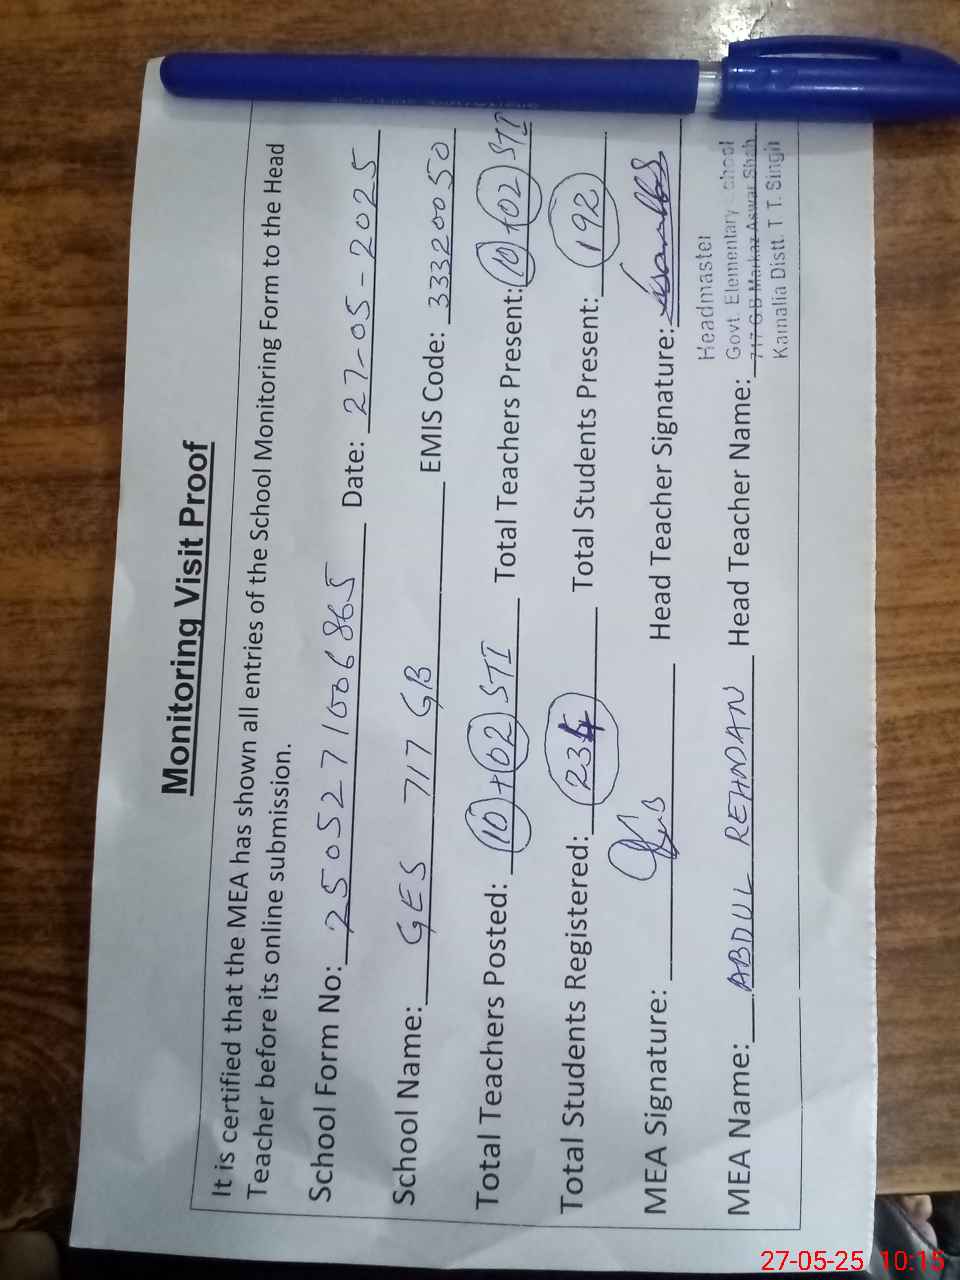 Monitoring Visit Proof
It is certified that the MEA has shown all entries of the School Monitoring Form to the Head
Teacher before its online submission.
School Form No: 2505271006865 Date: 27-05-2025
School Name: GES 717 GB EMIS Code: 33320050
Total Teachers Posted: 10+02 STI Total Teachers Present: 10+02 STI
Total Students Registered: 234 Total Students Present: 192
MEA Signature: Head Teacher Signature:
Headmaster
Govt. Elementary School
MEA Name: ABDUL REHMAN Head Teacher Name: 717 G.B Markaz Shah
Kamalia Distt. T T. Singh
27-05-25 10:15